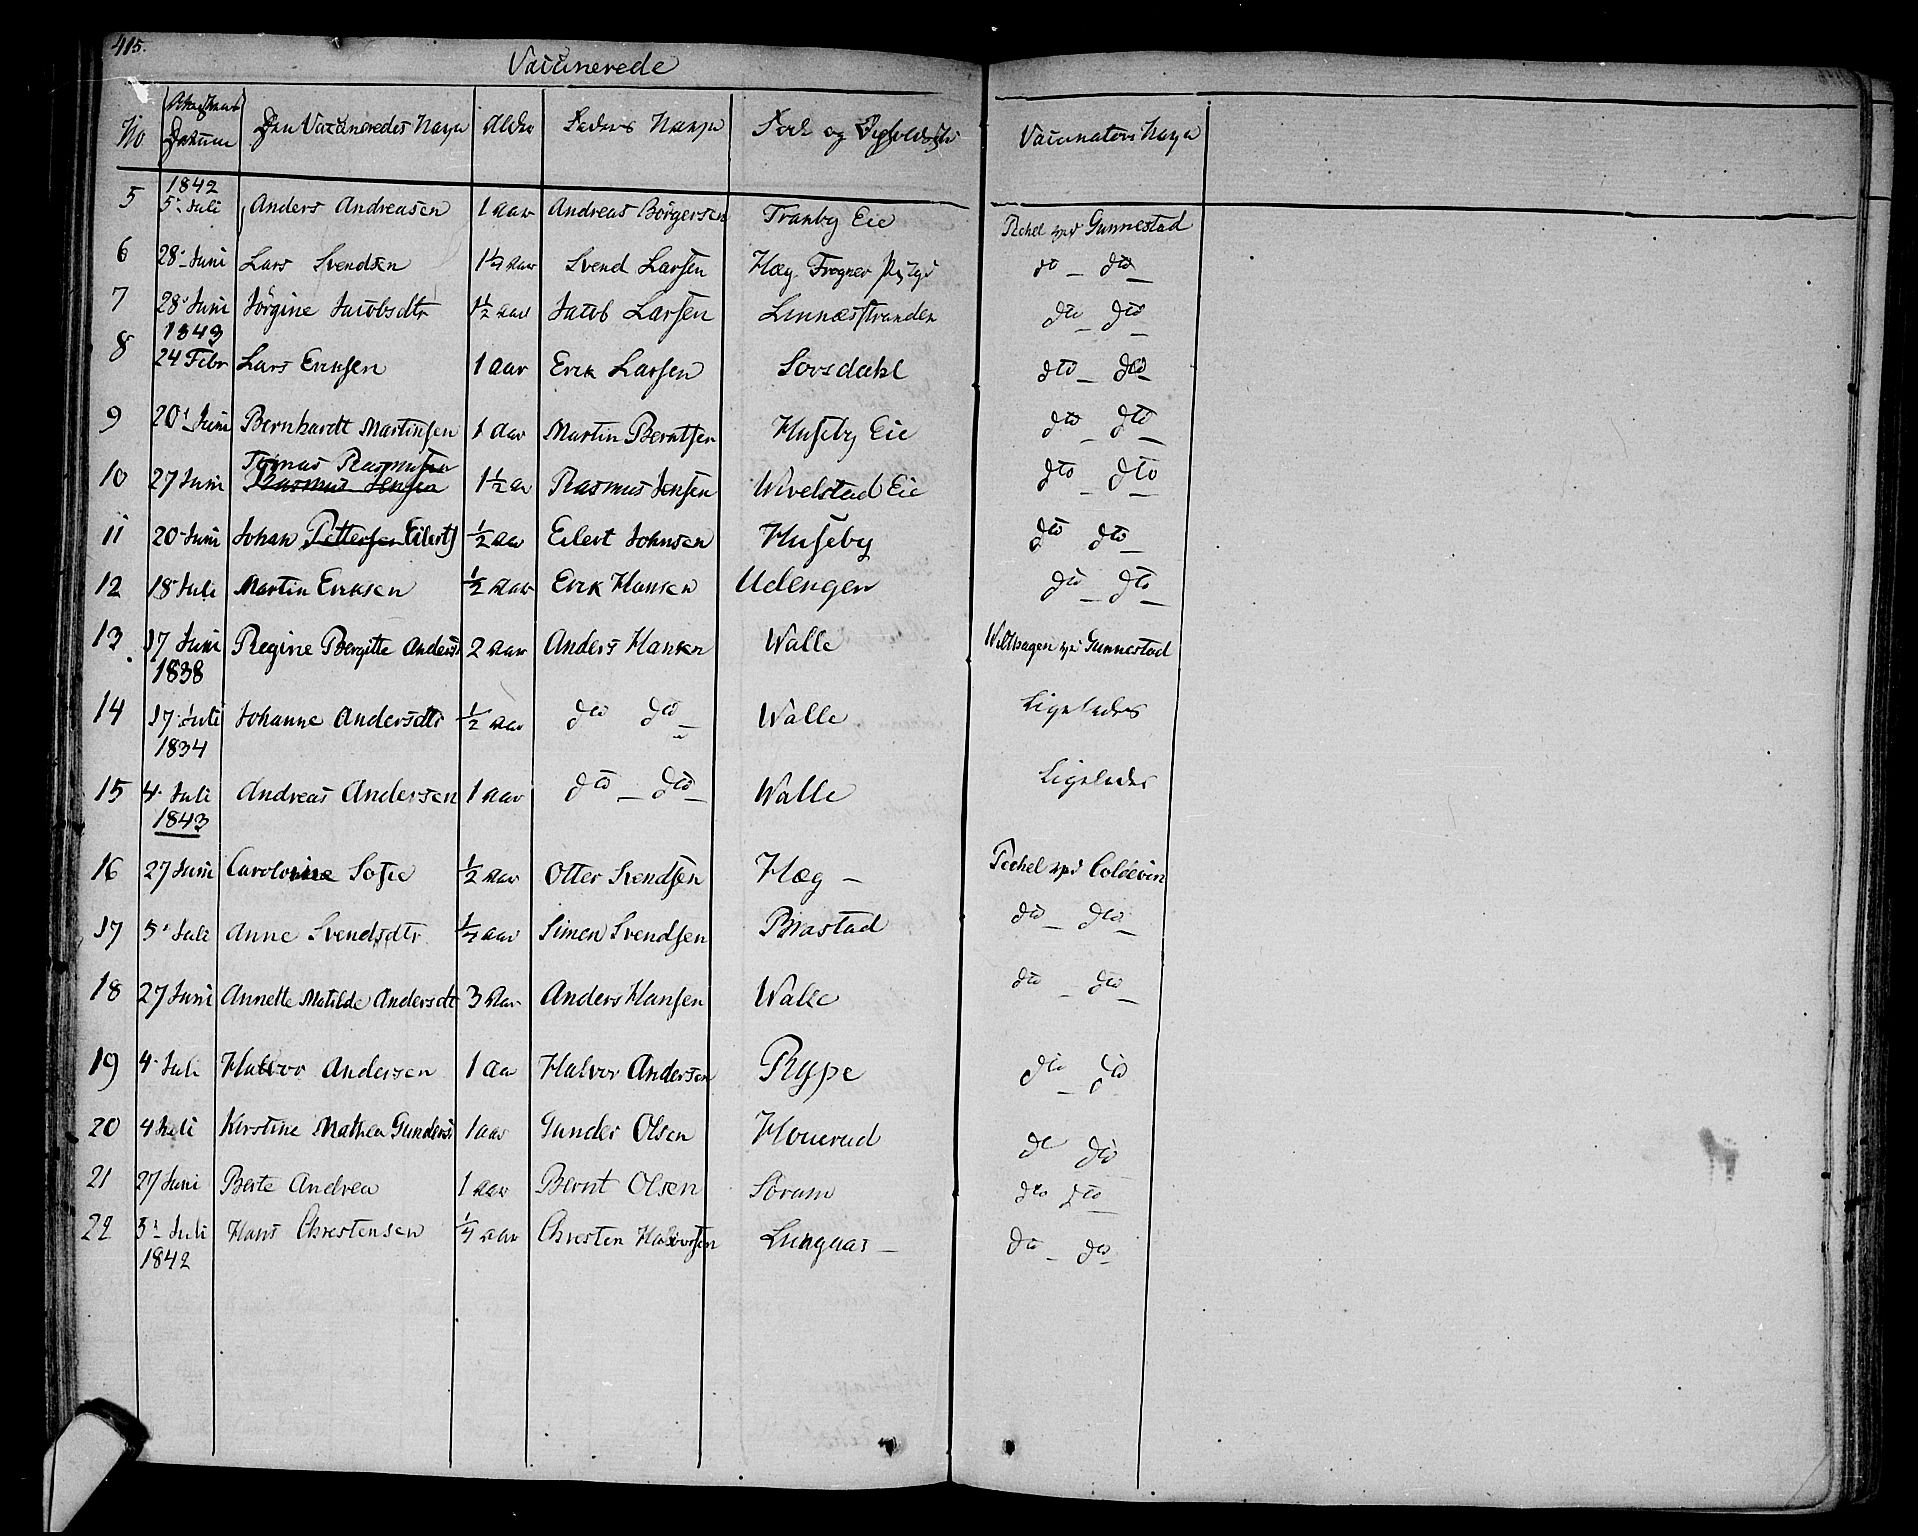 415.
Vaccinerede
No Attestens Datum Den Vaccineredes Navn Alder Faders Navn Føde og Opholdssted Vaccinators Navn
1842
5 5. Juli Anders Andreasen 1 aar Andreas Børgersen Tranby Eie Pechel ved Gunnestad
6 28. Juni Lars Svendsen 1¼ aar Svend Larsen Hæg Frogner dto _ dto _
7 28. Juni Jörgine Jacobsdtr 1½ aar Jacob Larsen Linnæsstranden dto _ dto _
1843
8 24 Febr Lars Eriksen 1 aar Erik Larsen Sorsdahl dto _ dto _
9 20. Juni Bernhardt Martinsen 1 aar Martin Berntsen Huseby Eie dto _ dto _
Tomas Rasmusen
10 27 Juni Rasmus Jensen 1½ aar Rasmus Jensen Wivelstad Eie dto _ dto _
11 20 Juni Johan Pettersen Eilerts ½ aar Eilert Johnsen Huseby dto dto _
12 18 Juli Martin Eriksen ½ aar Erik Hansen Udengen dto _ dto _
13. 17 Juni Regine Bergitte Anders 2 aar Anders Hansen Walle Wilthagen ved Gunnestad
1838
14 17. Juli Johanne Andersdtr ½ aar dto dto _ Walle Ligeledes
1834
15 4. Juli Andreas Andersen 1 aar dto _ dto _ Walle Ligeledes
1843
16 27 Juni Carolovine Sofie ½ aar Otter Svendsen Hæg _ Pechel ved Coldevin
17 5. Juli Anne Svendsdtr ¼ aar Simen Svendsen Brastad dto _ dto _
18 27 Juni Annette Matilde Andersdt 3 aar Anders Hansen Walle dto _ dto _
19 4. Juli Halvor Andersen 1 aa Halvor Andersen Rype dto _ dto
20 4 Juli Kirstine Mathea Gunders 1 aar Gunder Olsen Houerud dto dto
21 27 Juni Berte Andrea 1 aar Bernt Olsen Sorum dto dto _
22 3. Juli Hans Christensen ¼ aar Christen Halvorsen Lingaas _ dto _ dto _
1842